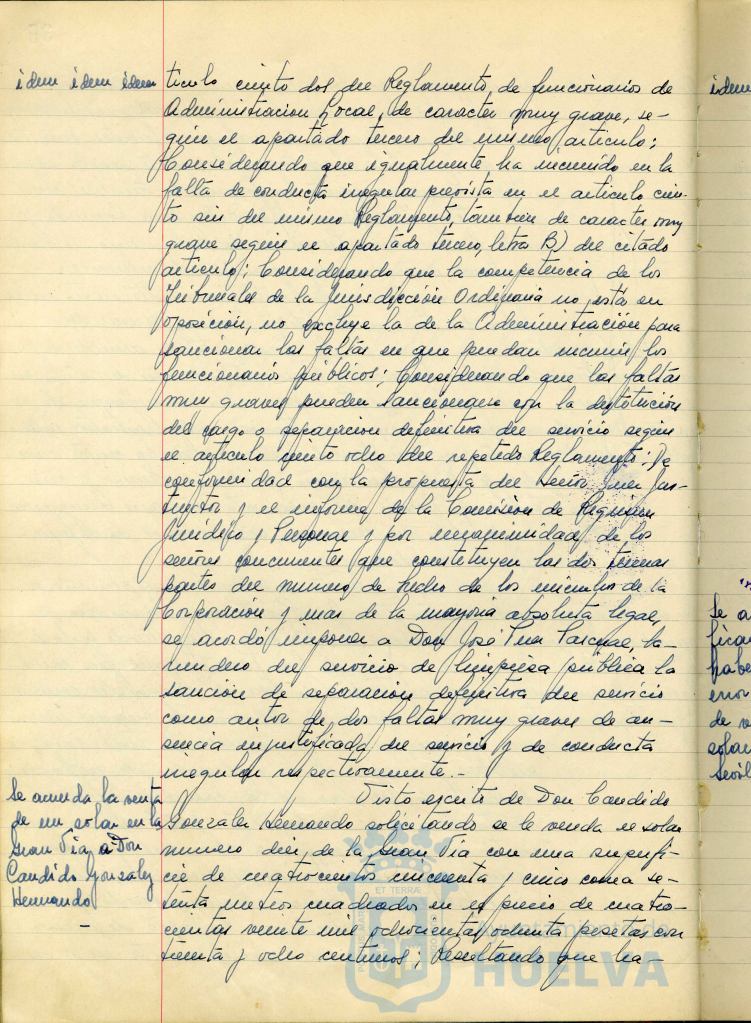 idem idem idem
ticulo ciento dos del Reglamento, de funcionarios de
Administracion Local, de caracter muy grave, se-
gún el apartado tercero del mismo articulo;
Considerando que igualmente ha incurrido en la
falta de conducta irregular prevista en el articulo cien-
to seis del mismo Reglamento, tambien de caracter muy
grave según el apartado tercero, letra B) del citado
articulo; Considerando que la competencia de los
Tribunales de la Jurisdicción Ordinaria no está en
oposición, no excluye la de la Administración para
sancionar las faltas en que puedan incurrir los
funcionarios públicos; Considerando que las faltas
muy graves pueden sancionarse con la destitución
del cargo o separacion definitiva del servicio según
el articulo ciento ocho del repetido Reglamento; De
conformidad con la propuesta del Señor Juez Ins-
tructor y el informe de la Comision de Regimen
Juridico y Personal y por unanimidad de los
señores concurrentes que constituyen las dos terceras
partes del numero de hecho de los miembros de la
Corporación y mas de la mayoria absoluta legal,
se acordó imponer a Don José Pascual, ba-
rrendero del servicio de limpieza pública la
sanción de separación definitiva del servicio
como autor de dos faltas muy graves de au-
sencia injustificada del servicio y de conducta
irregular respectivamente.-
Se acuerda la venta
de un solar en la
Gran Via a Don
Candido Gonzalez
Hernando
-
Visto escrito de Don Candido
Gonzalez Hernando solicitando se le venda el solar
numero diez de la Gran Via con una superfi-
cie de cuatrocientos cincuenta y cinco coma se-
tenta metros cuadrados en el precio de cuatro-
cientas veinte mil ochocientas ochenta pesetas con
treinta y ocho centimos; Resultando que ha-
idem
Se a
fica
habe
error
de v
solar
Sevil
ET TERRÆ
HUELVA